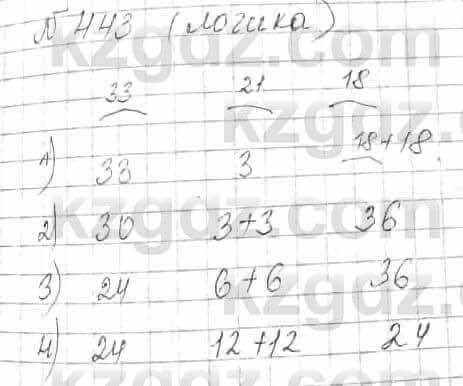 № 443 (логика)
33 21 18
1) 33 3 18+18
2) 30 3+3 36
3) 24 6+6 36
4) 24 12+12 24
kzgdz.com
kzgdz.com
kzgdz.com
kzgdz.com